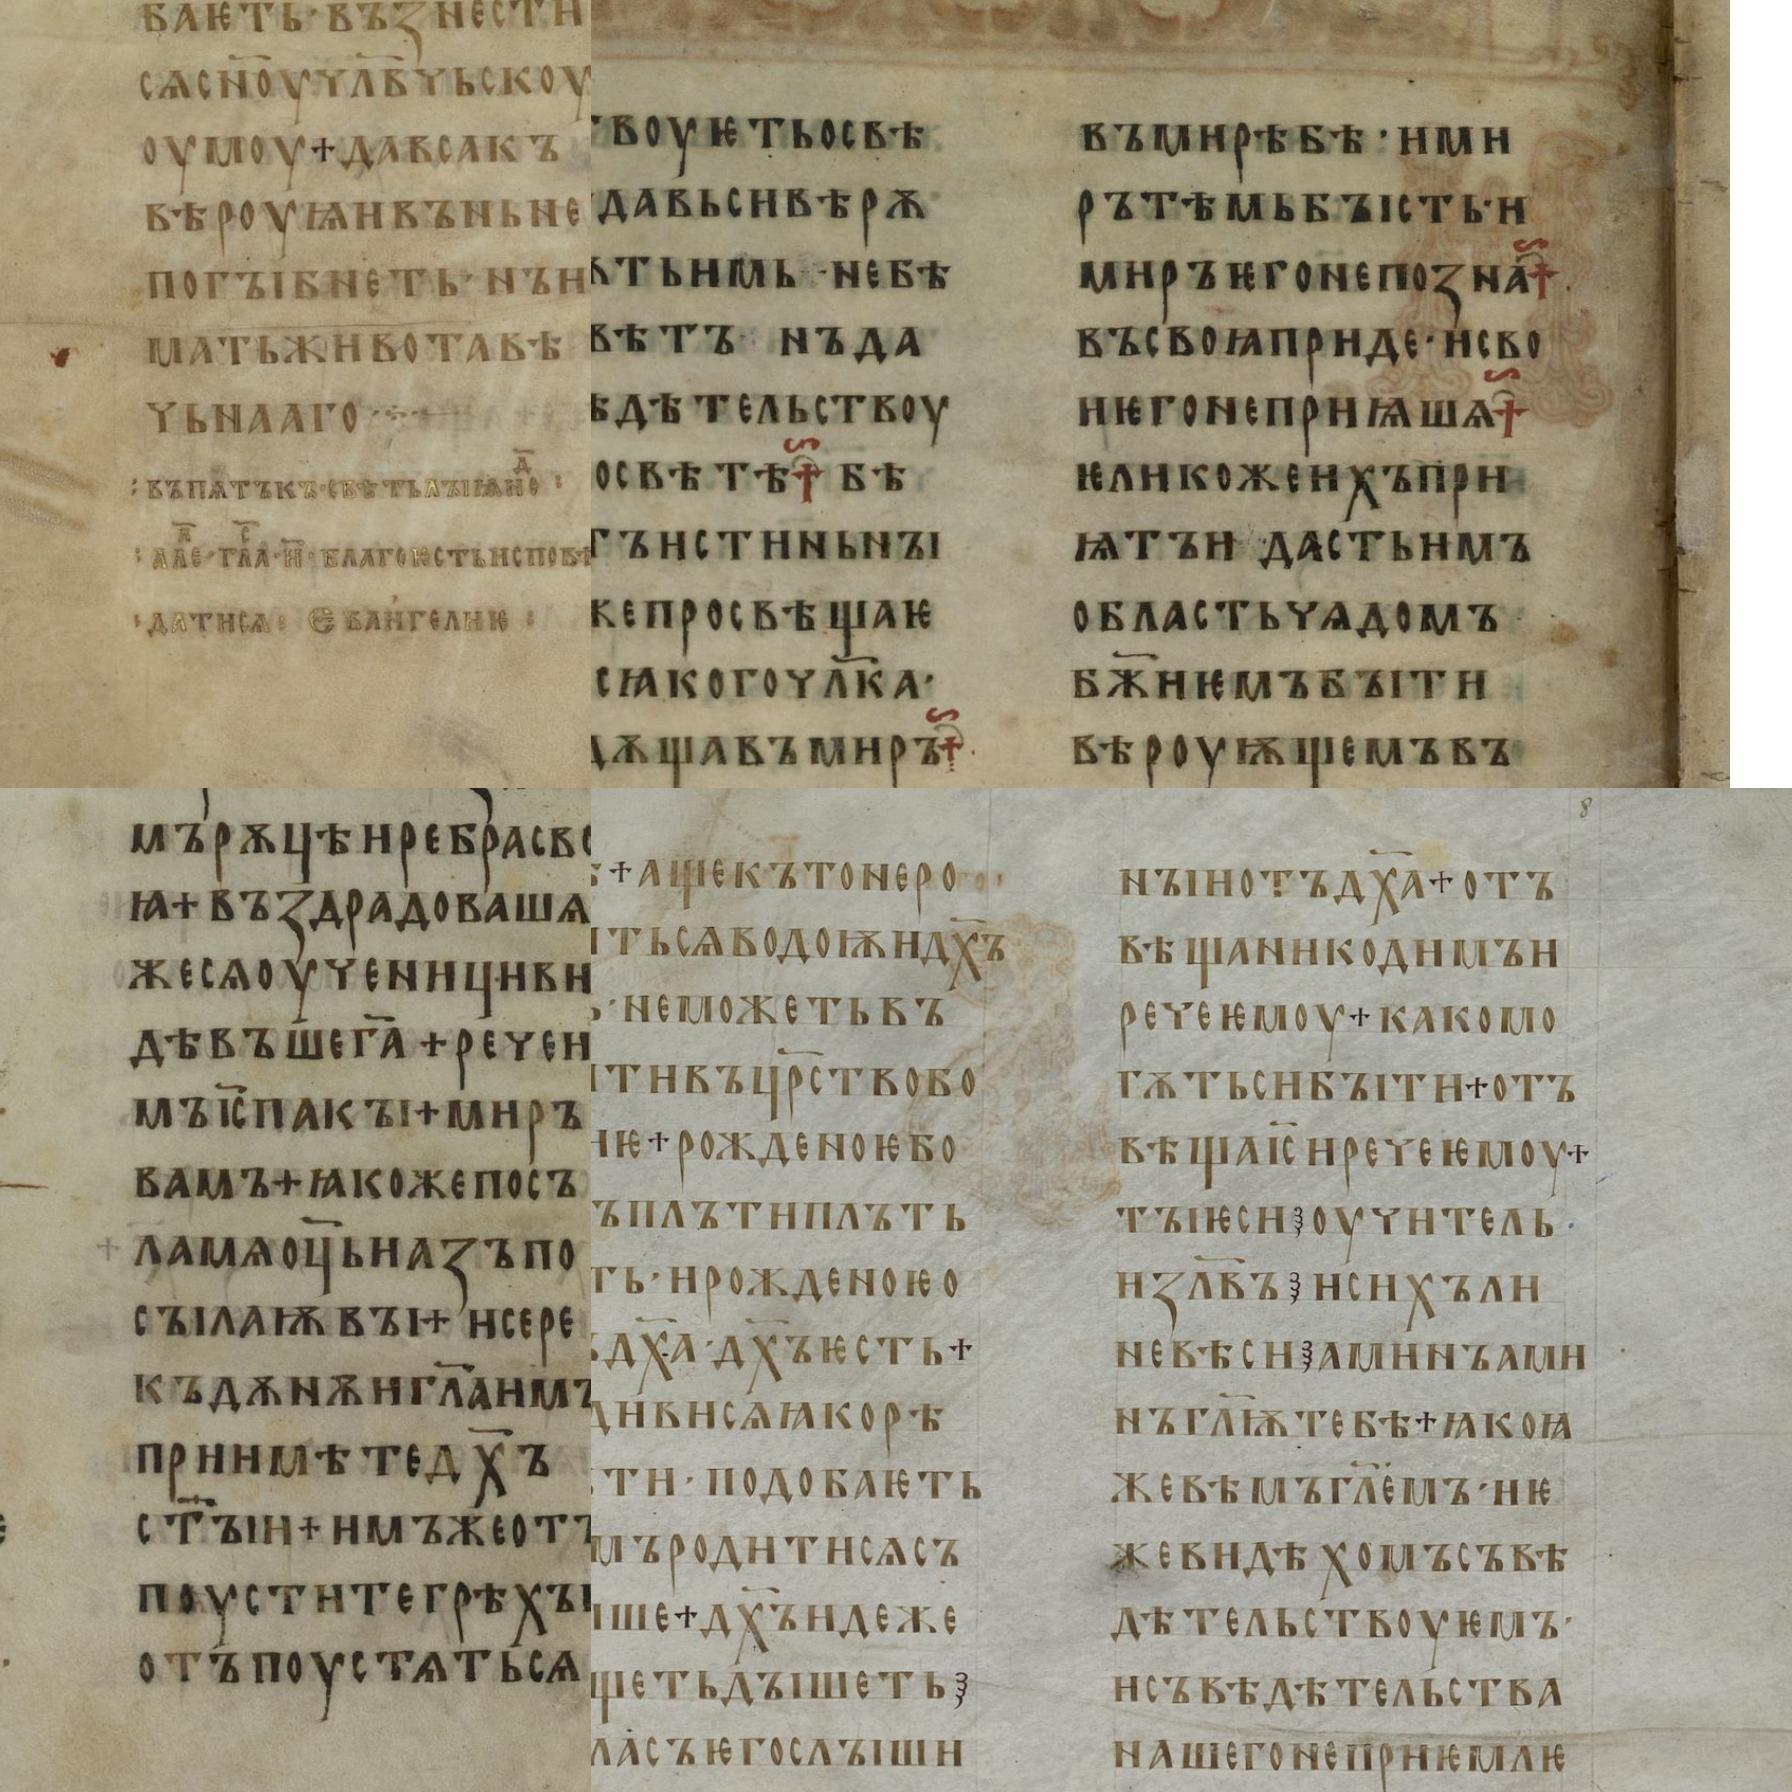 баѥть· възнести
сѧ сн҃оу члв҃чьскоу
оумоу+да вьсакъ
вѣроуѩи въ нь не
погꙑбнеть· нъ и
мать живота вѣ
чьнааго
въ пѧтъкъ· свѣтьлꙑѩ не
але· гла· и҃· благо ѥсть исповѣ
дати сѧ: Єванг҄елиѥ :
твоуѥть о свѣ
да вьси вѣрѫ
ть имь· не бѣ
вѣтъ· нъ да
ѣдѣтельствоу
о свѣтѣ+ бѣ
тъ истиньнꙑ
же просвѣщаѥ
сꙗкого чл҃ка·
дѫща въ миръ+
въ мирѣ бѣ· и ми
рътѣмь бꙑсть· и
миръ ѥго не позна+
въ своꙗ приде· и сво
и ѥго не приꙗшѧ+
ѥлико же ихъ при
ѩтъ и дасть имъ
область чѧдомъ
бж҃иѥмъ бꙑти
вѣроуѭщемъ въ
мъ рѫцѣ и ребра сво
ꙗ+ въздрадовашѧ
же сѧ оученици ви
дѣвъше г҃а+ рече и
мъ і҃с пакꙑ+ миръ
вамъ+ ꙗкоже посъ
ла мѧ оц҃ь и азъ по
сꙑлаѭ вꙑ+ и се ре
къ дѫнѫ и гл҃а имъ
приимѣте дх҃ъ
ст҃ꙑи+ имъже отъ
поустите грѣхꙑ
отъпоустѧтьсѧ
+аще къто не ро
ть сѧ водоѭ и дх҃ъ
· не можеть въ
ти въ цр҃ство бо
иѥ+рожденоѥ бо
ъ плъти плъть
ть· и рожденоѥ о
дх҃а· дх҃ъ ѥсть+
диви сѧ ꙗко рѣ
ти· подобаѥть
мъ родити сѧ съ
ꙑше+дх҃ъ идеже
щеть дꙑшеть
ласъ ѥго слꙑши
8
нꙑи отъ дх҃а+отъ
вѣща никодимъ и
рече ѥмоу+како мо
гѫть си бꙑти+отъ
вѣща і҃с и рече ѥмоу+
тꙑ ѥси оучитель
из҃лвъ и сихъ ли
не вѣси аминъ ами
нъ гл҃ѭ тебѣ+ꙗко ꙗ
же вѣмъ гл҃емъ· и ѥ
же видѣхомъ съвѣ
дѣтельствоуѥмъ·
и съвѣдѣтельства
нашего не приѥмлѥ